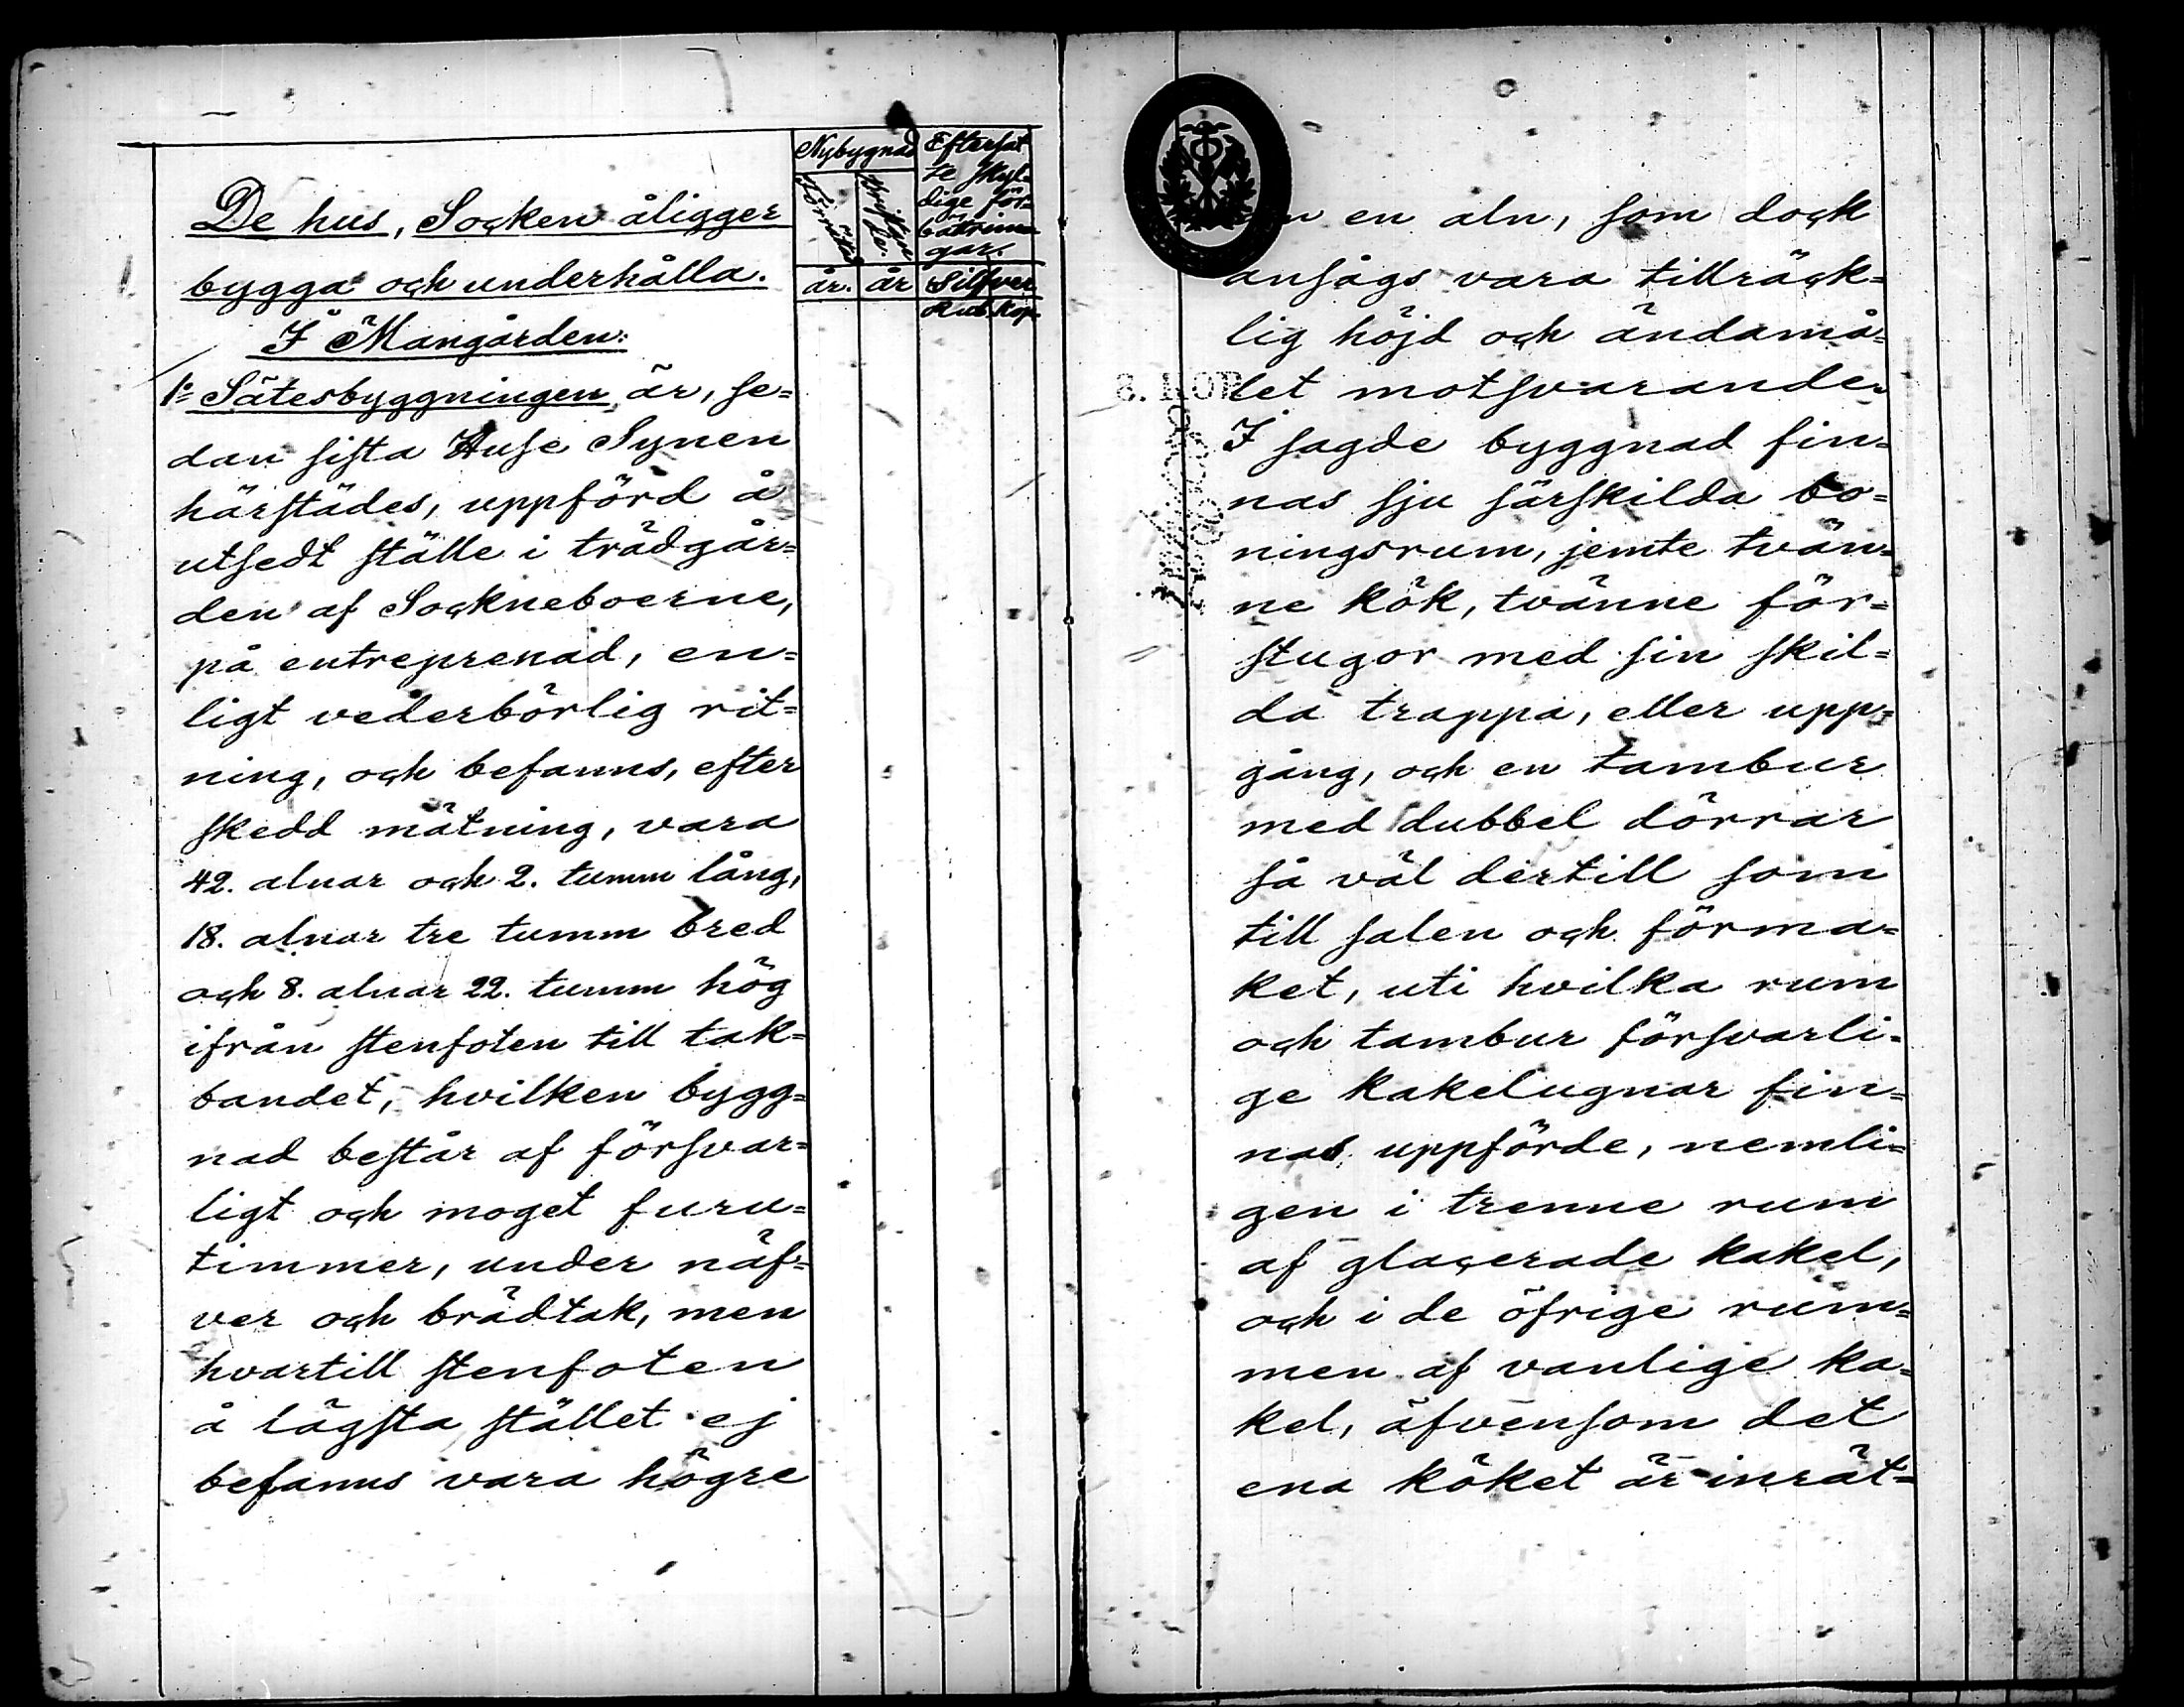 Nybygnad
Eftersat
te skyl-
dige för-
bättrin-
gar.
år. år Silfver
Rub. Kop.
De hus, Socken åligger
bygga och underhålla.
I Mangården:
1º Sätesbyggningen är, se=
dan sista Huse Synen
härstädes, uppförd å
utsedt ställe i trädgår=
den af Sockneboerne,
på entreprenad, en=
ligt vederbörlig rit=
ning, och befanns, efter
skedd mätning, vara
42. alnar och 2. tumm lång,
18. alnar tre tumm bred
och 8. alnar 22. tumm hög
ifrån stenfoten till tak=
bandet, hvilken bygg=
nad består af försvar=
ligt och moget furu=
timmer, under näf=
ver och brädtak, men
hvartill stenfoten
å lägsta stället ej
befanns vara högre
en aln, som dock
ansågs vara tillräck=
lig höjd och ändamå=
let motsvarande.
I sagde byggnad fin=
nas sju särskilda bo=
ningsrum, jemte tvän=
ne kök, tvänne för=
stugor med sin skil=
da trappa, eller upp=
gång, och en tambur
med dubbel dörrar
så väl dertill som
till salen och förma=
ket, uti hvilka rum
och tambur försvarli=
ge kakelugnar fin=
nas uppförde, nemli=
gen i trenne rum
af glacerade kakel,
och i de öfrige rum=
men af vanlige ka=
kel, äfvensom det
ena köket är inrät=